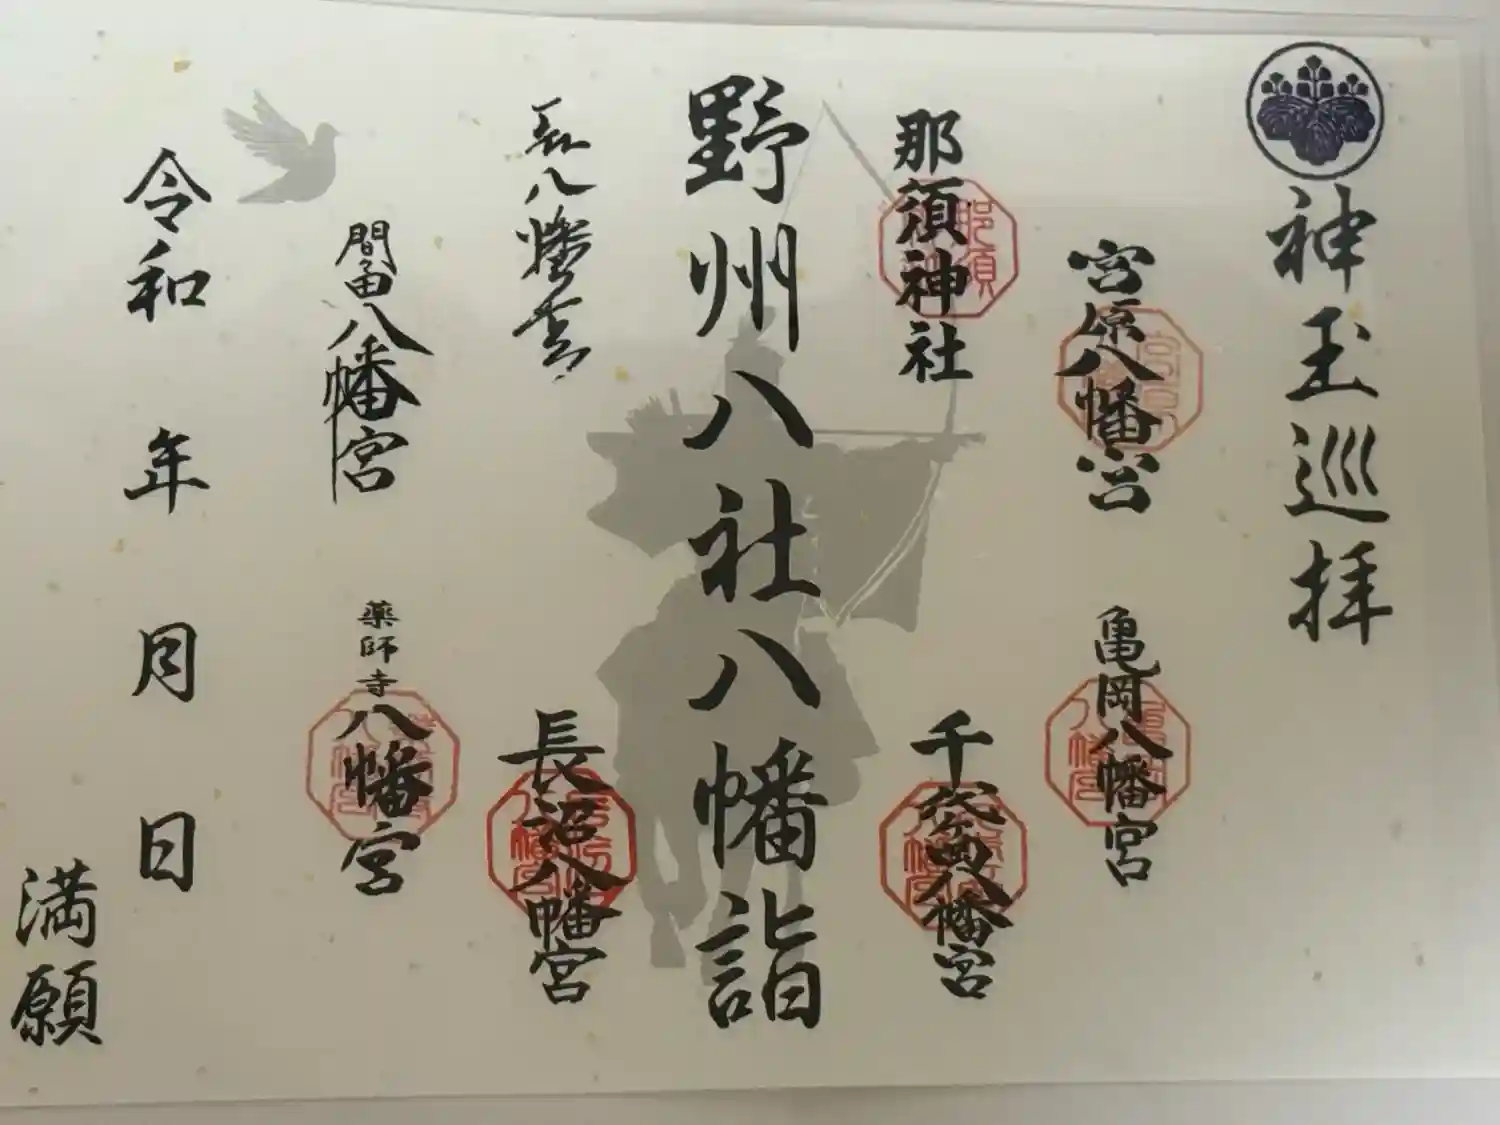 神玉巡拝
宮原八幡宮
亀岡八幡宮
那須神社
那須
千代ヶ岡八幡宮
野州八社八幡詣
八幡宮
長沼八幡宮
間々田八幡宮
薬師寺八幡宮
令和 年 月 日
満願